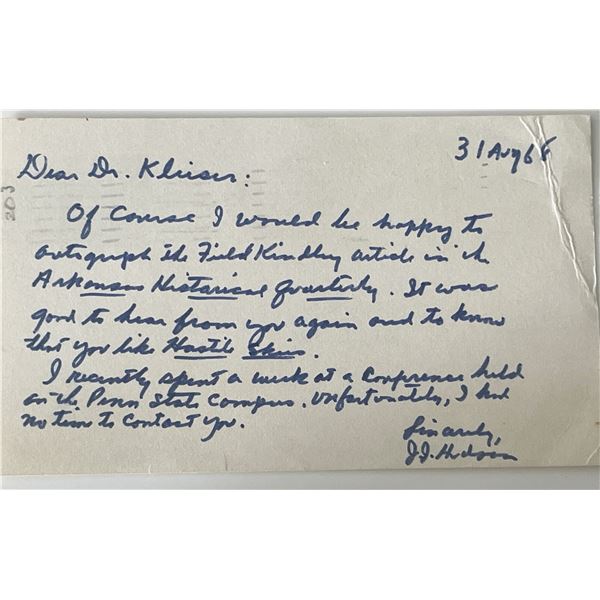 31 Aug 68
Dear Dr. Klieser:
203
Of Course I would be happy to
autograph the Field Kindley article in the
Arkansas Historical Quarterly. It was
good to hear from you again and to know
that you like Hostile Skies.
I recently spent a week at a Conference held
on the Penn State Campus. Unfortunately, I had
no time to contact you.
Sincerely,
J.J. Hudson